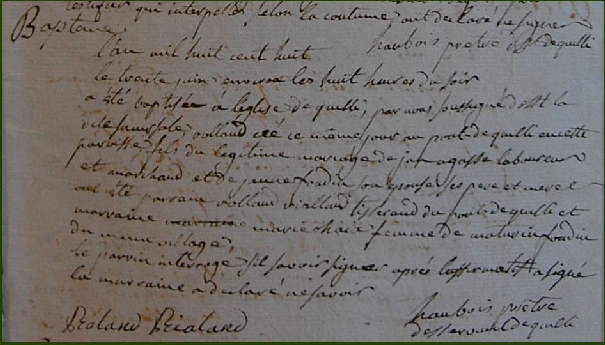 qui interpellés selon la coutume, ont declaré ne signer
Bapteme. haubois pretre desst de quille
L'an mil huit cent huit
le trente juin environ les huit heures du soir
a été baptisée a l'eglise de quille, par nous soussigné desst la
dite paroisse, rolland né ce même jour au pont de quille en cette
paroisse, fils du legitime mariage de jan agasse laboureur
et marchand et de jeanne fradin son epouse ses pere et mere
ont été parrain rolland riolland tisserand du pont de quille et
marraine marie femme de maturin fradin
du meme village,
le parrin interrogé s'il savoir signer apres l'affirmatif a signé
la marraine a declaré ne savoir
Roland Rioland haubois pretre
desservant de quille